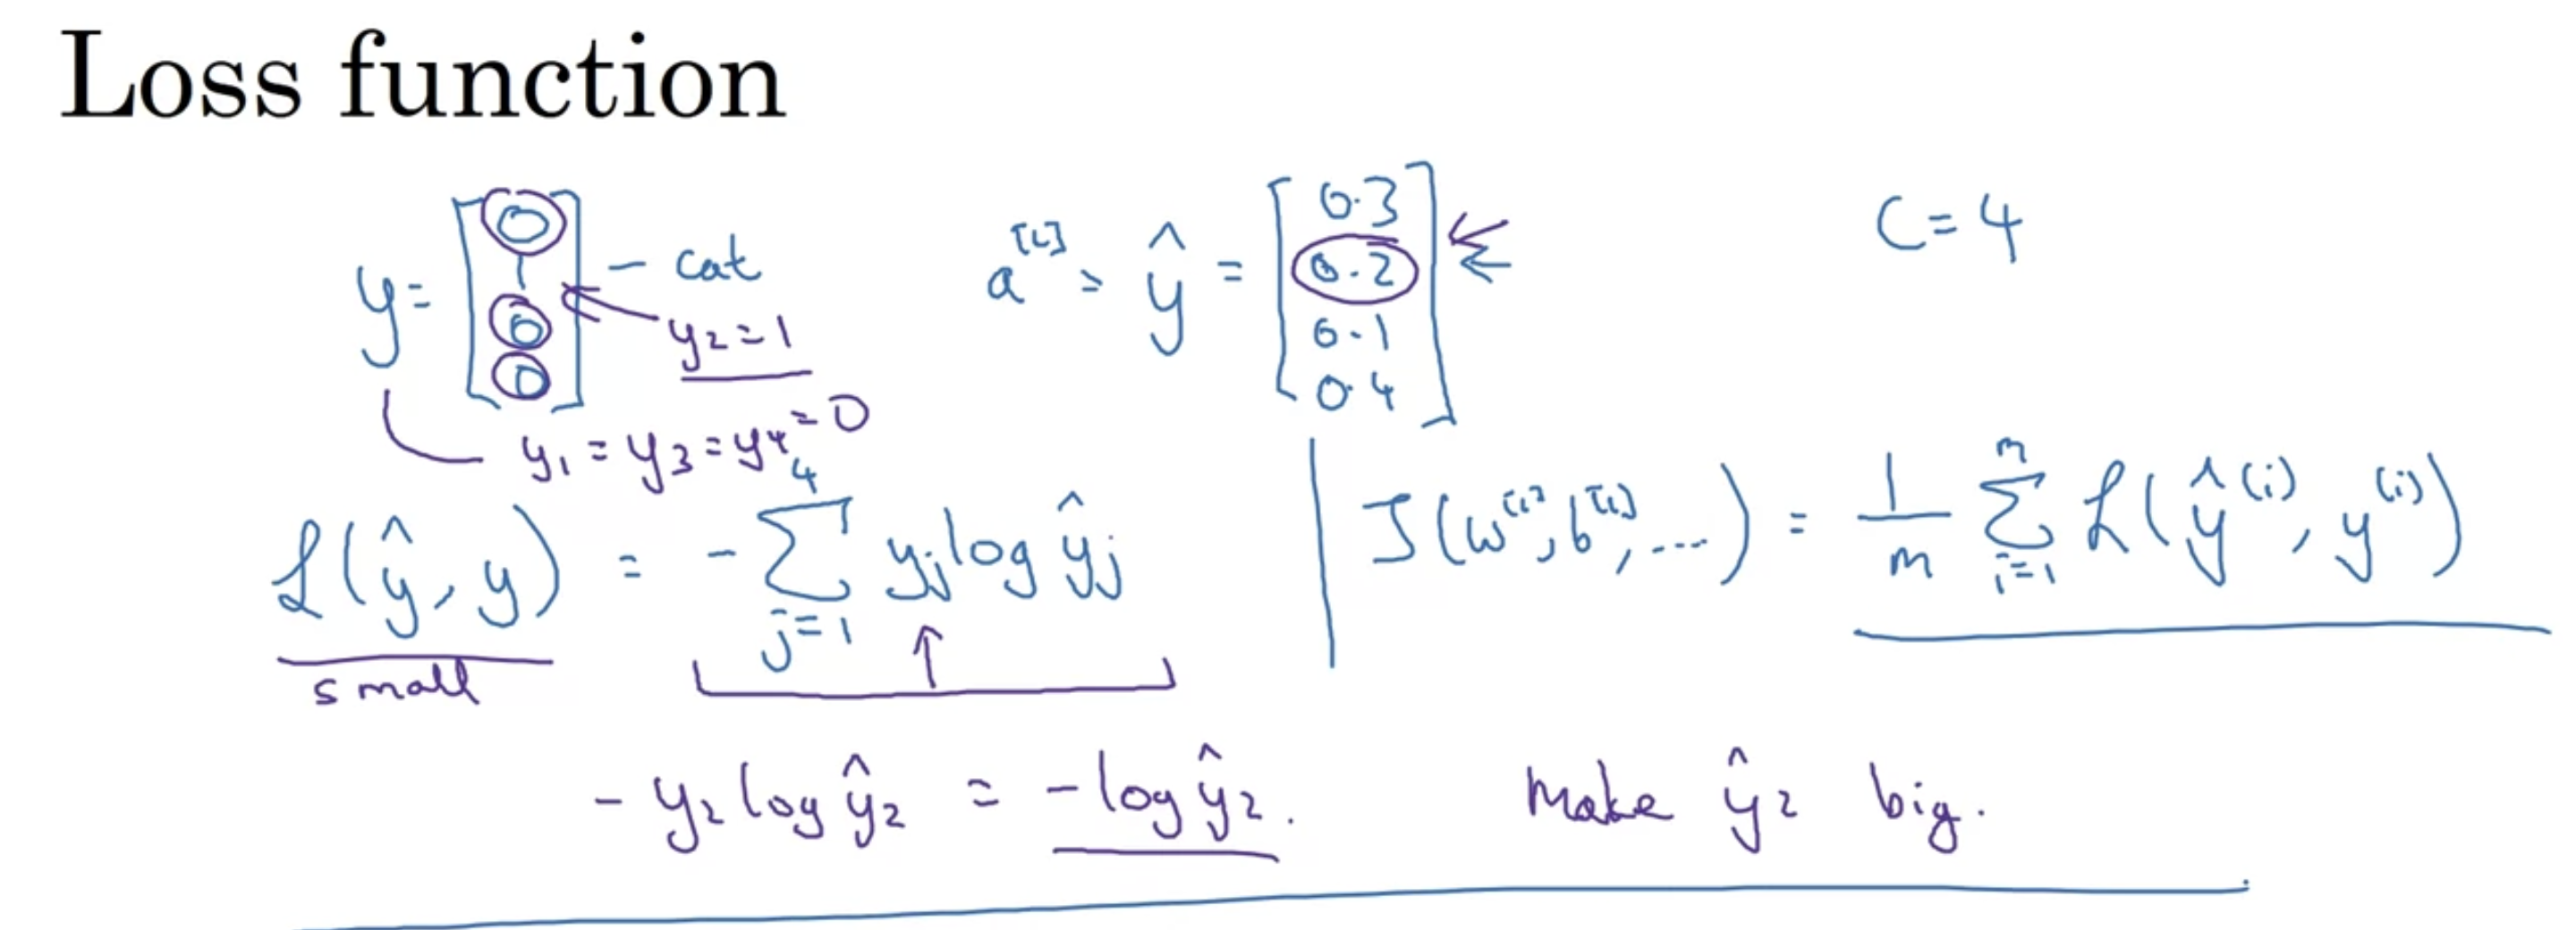 Loss function
y = [0 1 0 0] - cat
y₂ = 1
y₁ = y₃ = y₄ = 0
a^[L] = ŷ = [0.3 0.2 0.1 0.4]
C = 4
ℒ(ŷ, y) = - ∑_{j=1}^{4} yⱼ log ŷⱼ
small
J(w^[1], b^[1], ...) = 1/m ∑_{i=1}^{m} ℒ(ŷ^(i), y^(i))
- y₂ log ŷ₂ = - log ŷ₂.
Make ŷ₂ big.